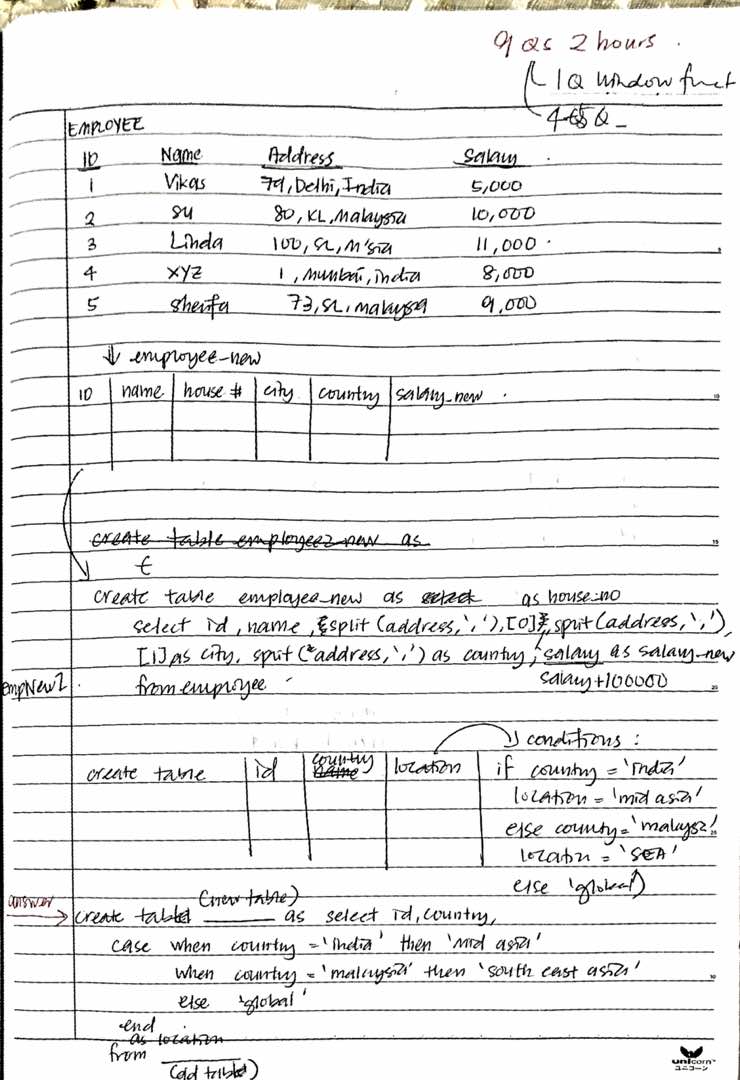 9 Qs 2 hours.
1 Q window funct
4
EMPLOYEE
ID Name Address Salary
1 Vikas 79, Delhi, India 5,000
2 Su 80, KL, Malaysia 10,000
3 Linda 100, SL, M'sia 11,000
4 XYZ 1, Mumbai, india 8,000
5 Sherfa 73, SL, malaysia 9,000
↓ employee_new
ID name house # city country salary_new
create table employee2_new as
create table employee_new as select as house_no
select id, name, split (address, ','), [0], split (address, ','),
[1] as city, split (address, ',') as country, salary as salary_new
empNew2 from employee salary+100000
conditions:
create table id country name location if country = 'india'
location = 'mid asia'
else county = 'malaysi'
locatn = 'SEA'
else 'global'
answer
(new table)
create table ______ as select id, country,
case when country = 'india' then 'mid asia'
when country = 'malaysia' then 'south east asia'
else 'global'
end
as location
from ______
unicorn
ユニコーン